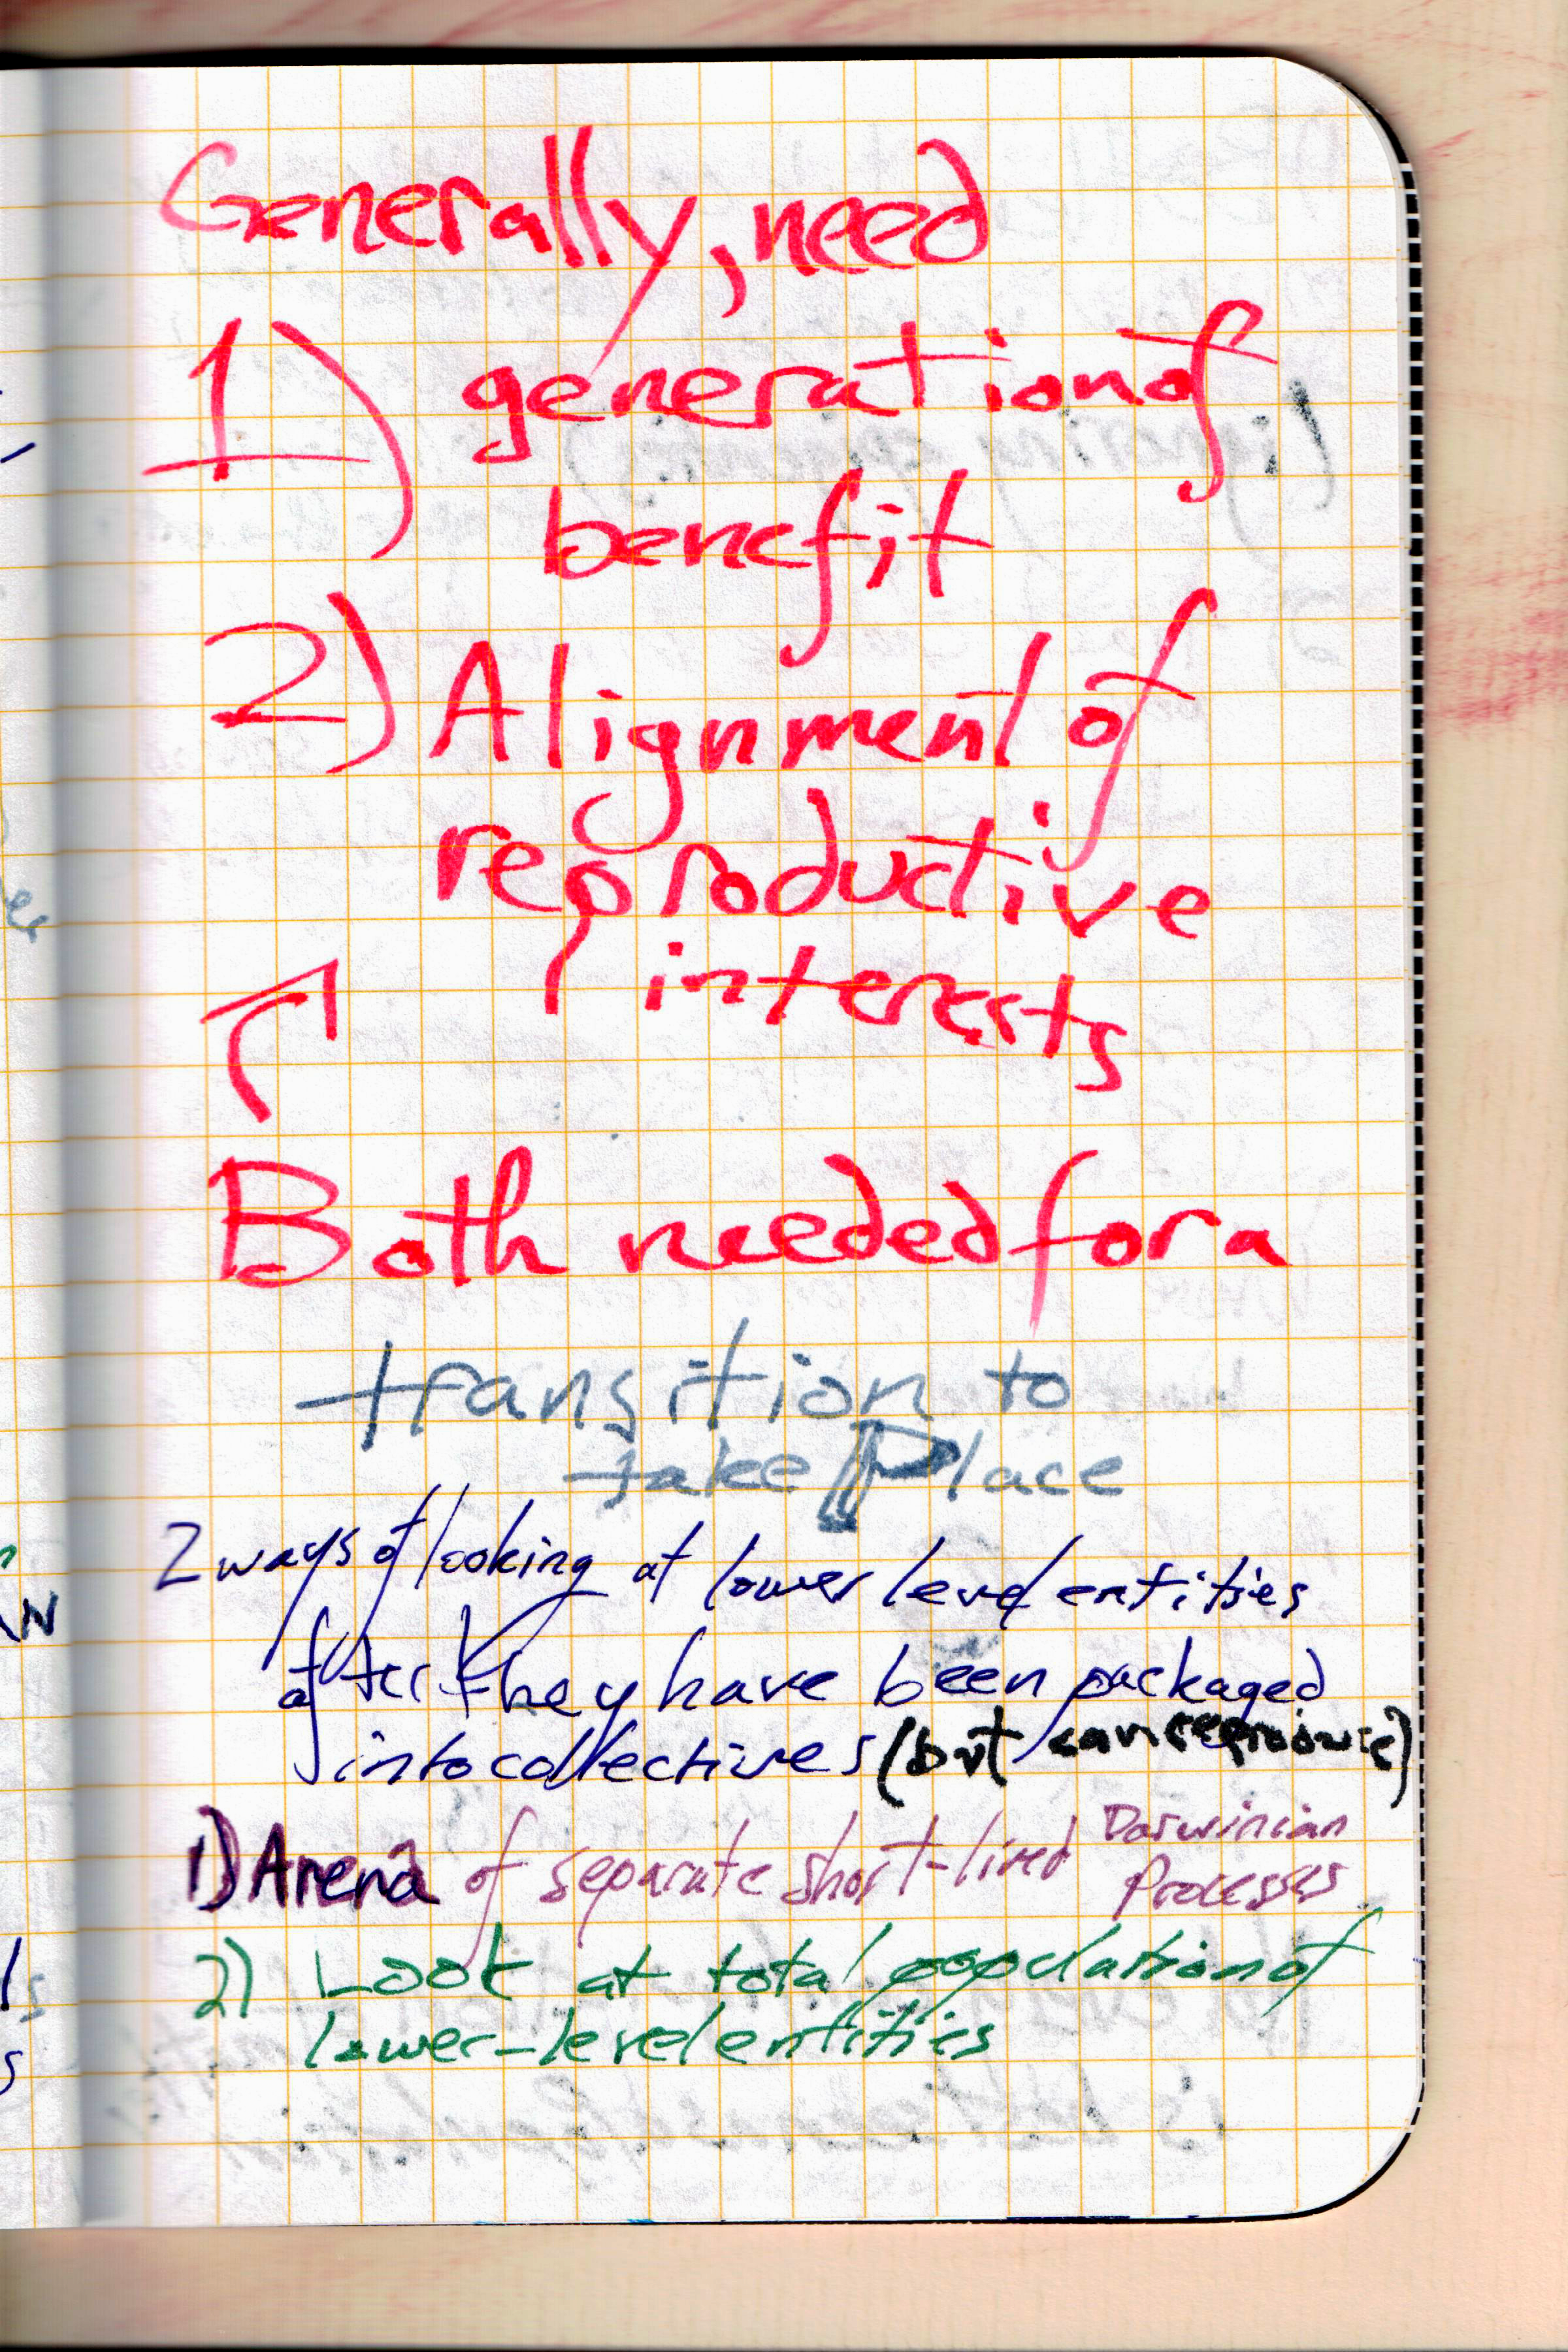 Generally, need
1) generation of
benefit
2) Alignment of
reproductive
interests
Both needed for a
transition to
take Place
2 ways of looking at lower level entities
after they have been packaged
into collectives (but can reproduce)
1) Arena of separate short-lived Darwinian
Processes
2) Look at total population of
lower-level entities